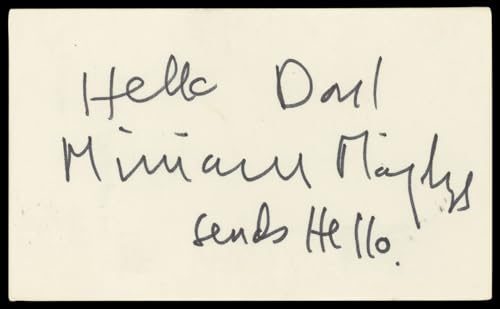 Hello
Miriam Margolyes
sends Hello.